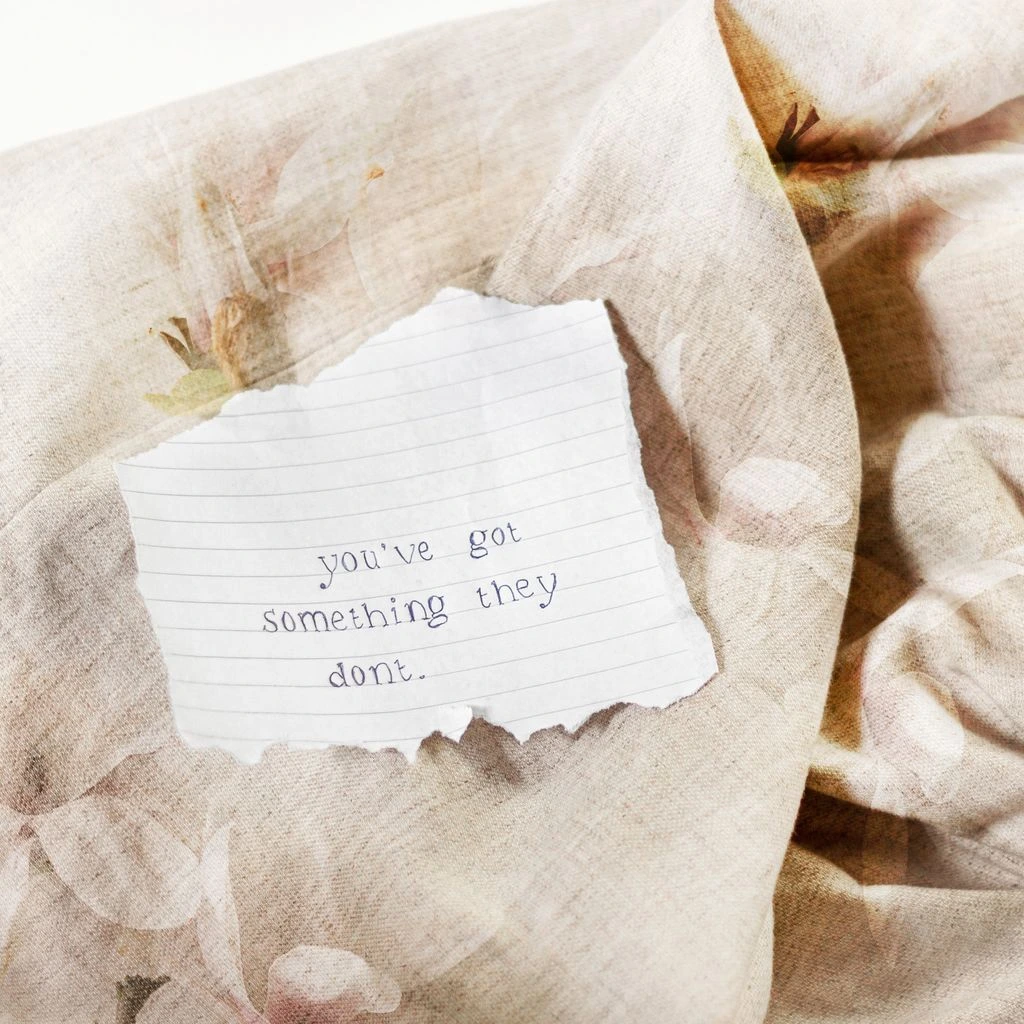 you've got
something they
dont.